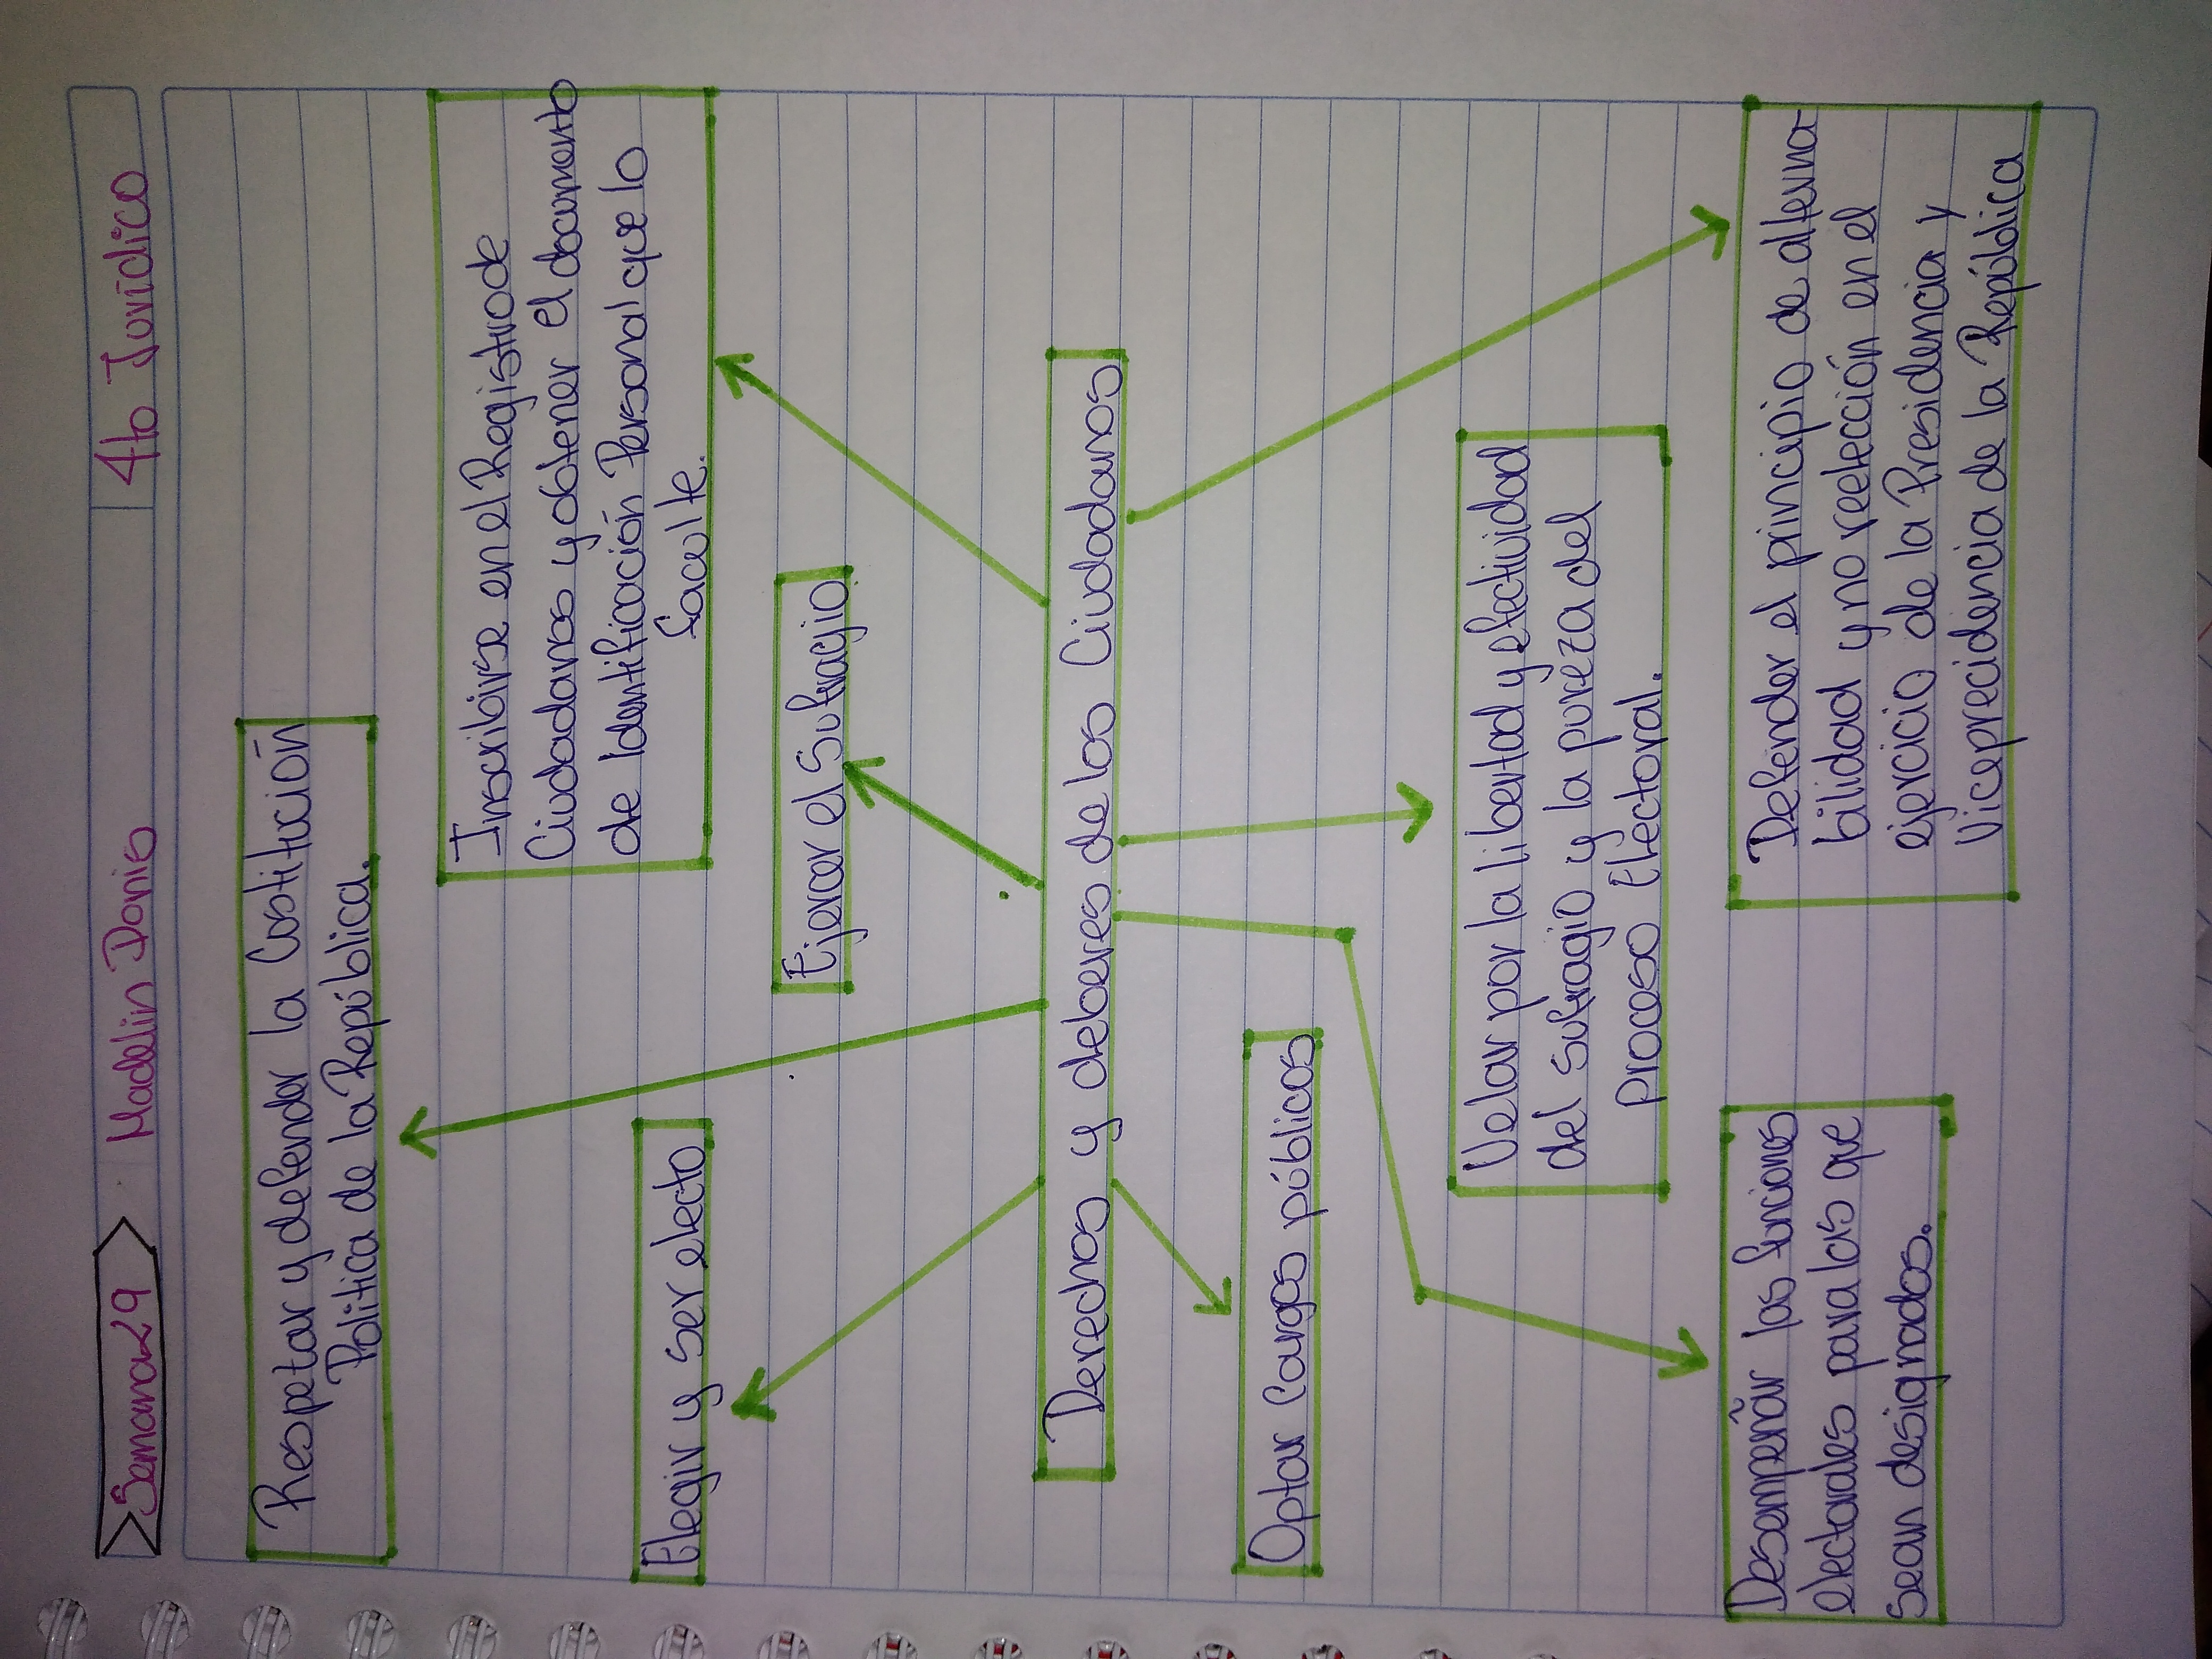 Semana 29
Madelin Donis
4to Jurídico
Respetar y defender la Costitución
Politica de la República.
Inscribirse en el Registro de
Ciudadanos y obtener el documento
de Identificación Personal que lo
faculte.
Elegir y ser electo
Ejercer el Sufragio
Derechos y deberes de los Ciudadanos
Optar Cargos públicos
Velar por la libertad y efectividad
del sufragio y la pureza del
proceso Electoral.
Desempeñar las funciones
electorales para las que
sean designados.
Defender el principio de alterna
bilidad y no reelección en el
ejercicio de la Presidencia y
Viceprecidencia de la República